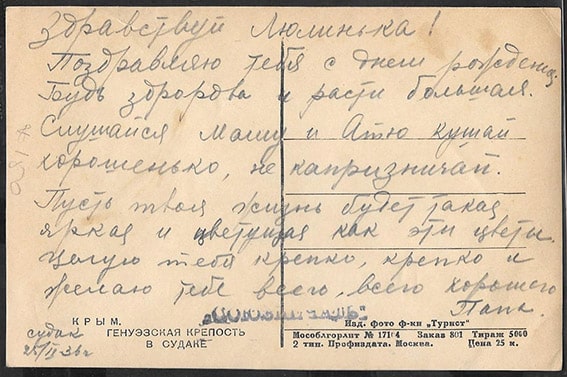 Здравствуй Люлинька!
Поздравляю тебя с днем рождения.
Будь здорова и расти большая.
Слушайся Машу и Атю кушай
хорошенько, не капризничай.
Пусть твоя жизнь будет такая
яркая и цветущая как эти цветы.
Целую тебя крепко, крепко и
желаю тебе всего, всего хорошего
Папа.
КРЫМ.
ГЕНУЭЗСКАЯ КРЕПОСТЬ
В СУДАКЕ
судак
Изд. фото ф-ки „Турист"
Мособлгорлит № 17164 Заказ 801 Тираж 5000
2 тип. Профиздата. Москва. Цена 25 к.